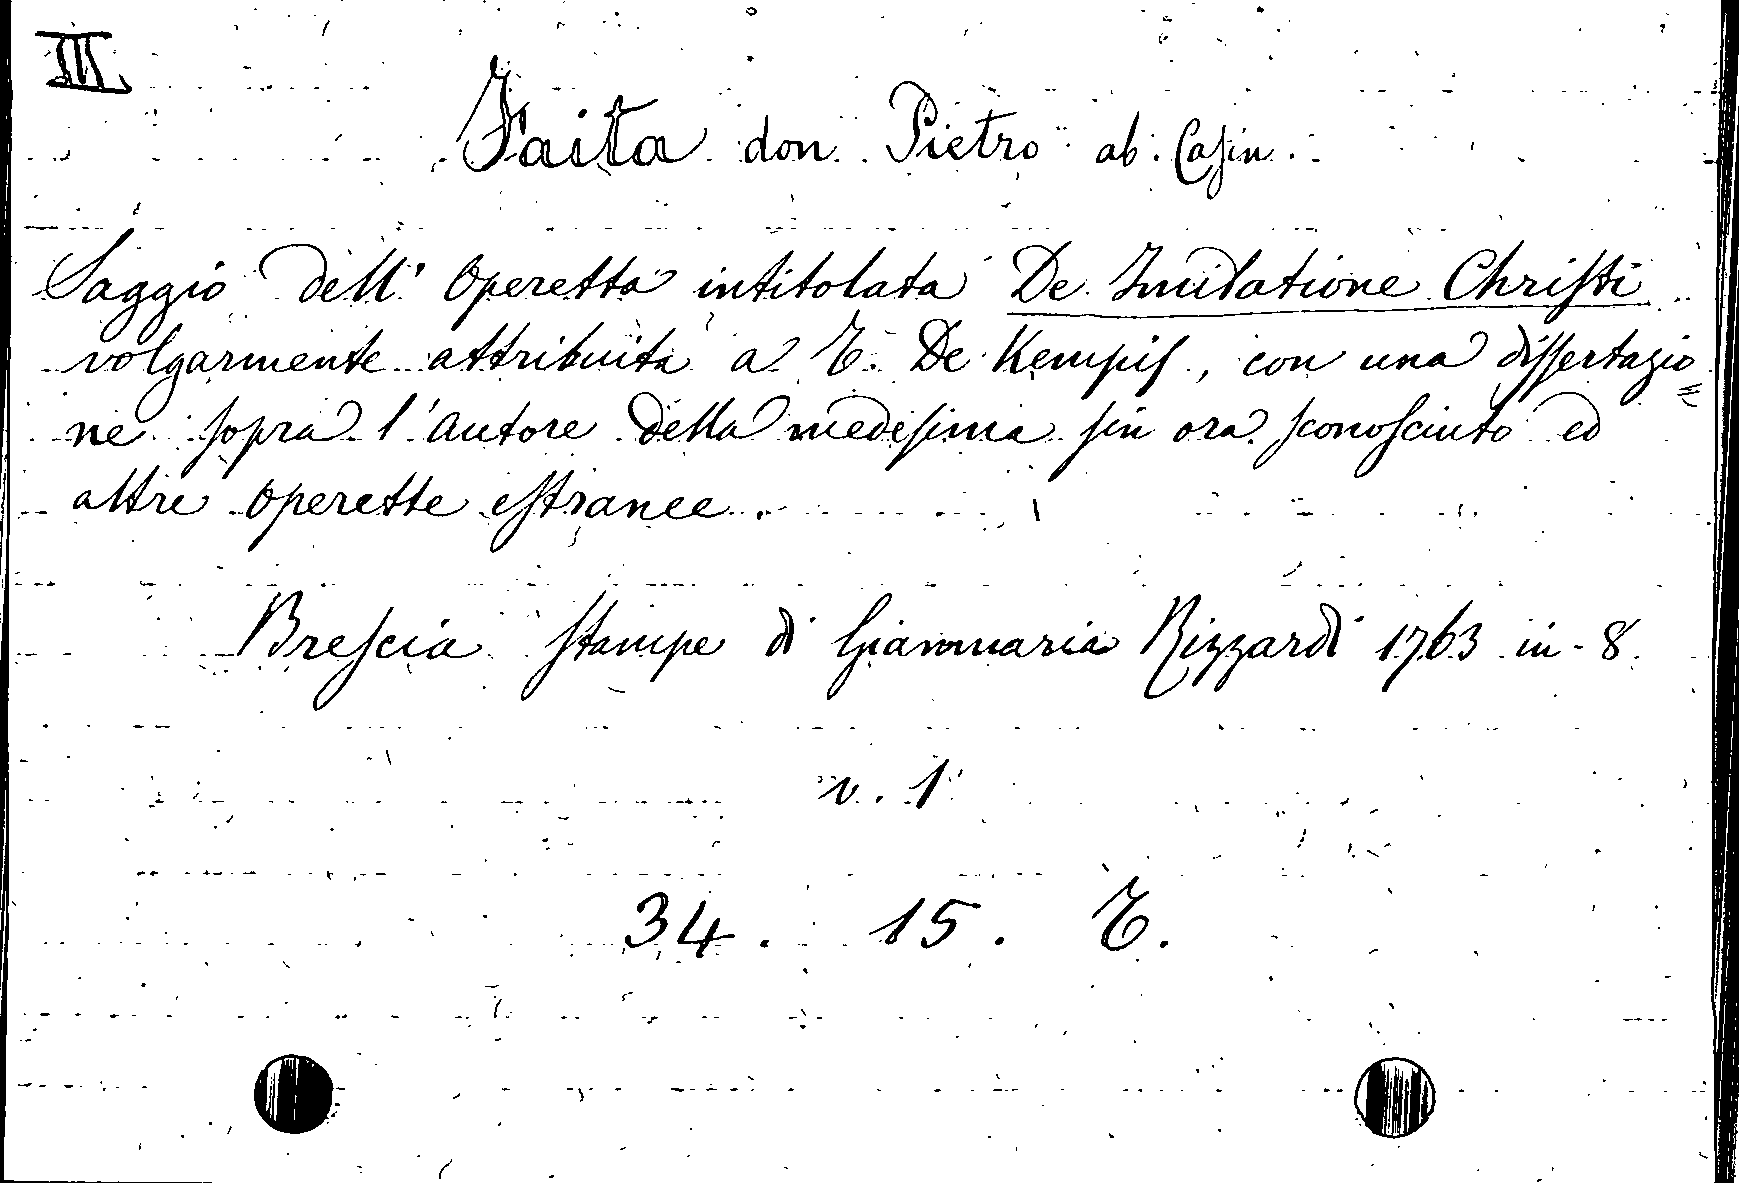 III
Faita don Pietro ab. Casin.
Saggio dell' Operetta intitolata De Imitatione Christi
volgarmente attribuita a T. De Kempis, con una dissertazio
ne sopra l'autore della medesima sin ora sconosciuto ed
altre operette estranee.
Brescia Stampe di Gianmaria Rizzardi 1763 in-8.
v. 1
34. 15. T.